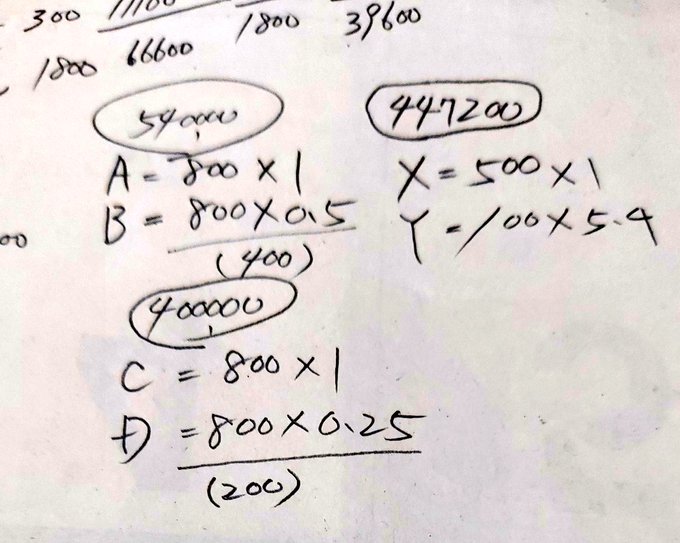 300 11100 1800 39600
1800 66600
540000 447200
A = 800 × 1 X = 500 × 1
B = 800 × 0.5 Y = 100 × 5.4
00
(400)
400000
C = 800 × 1
D = 800 × 0.25
(200)